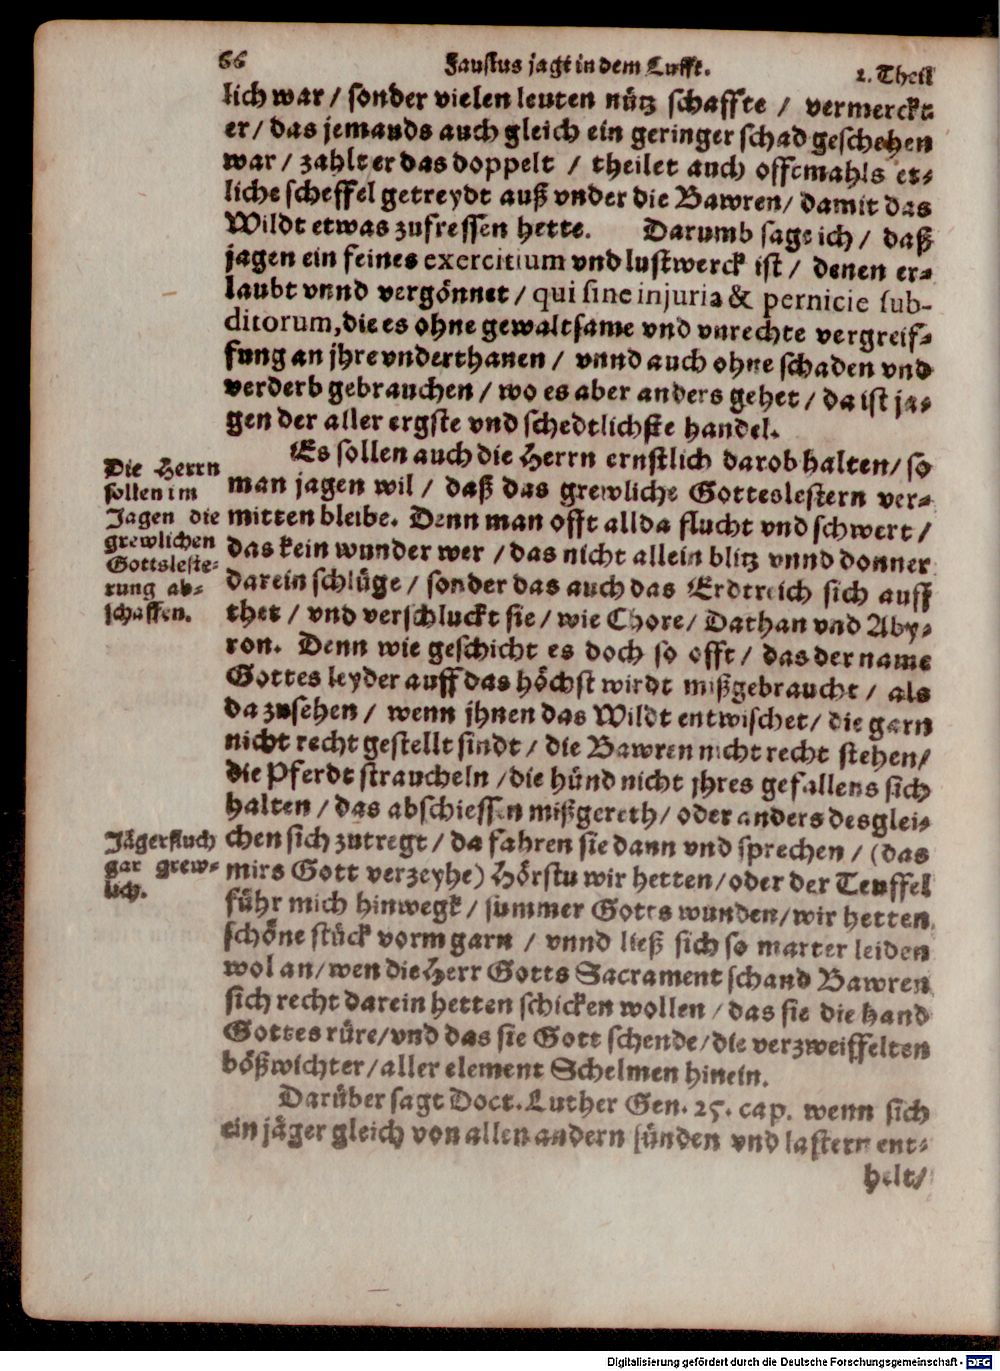 66 Faustus jagt in dem Lufft. 1. Theil
lich war / sonder vielen leuten nütz schaffte / vermerckt
er / das jemands auch gleich ein geringer schad geschehen
war / zahlt er das doppelt / theilet auch offtmahls et-
liche scheffel getreydt auß vnder die Bawren / damit das
Wildt etwas zufressen hette. Darumb sage ich / daß
jagen ein feines exercitium vnd lustwerck ist / denen er-
laubt vnnd vergönnet / qui sine injuria & pernicie sub-
ditorum, die es ohne gewaltsame vnd vnrechte vergreif-
fung an jhre vnderthanen / vnnd auch ohne schaden vnd
verderb gebrauchen / wo es aber anders gehet / da ist ja-
gen der aller ergste vnd schedtlichste handel.
Es sollen auch die Herrn ernstlich darob halten / so
man jagen wil / daß das grewliche Gotteslestern ver-
mitten bleibe. Denn man offt allda flucht vnd schwert /
das kein wunder wer / das nicht allein blitz vnnd donner
darein schlüge / sonder das auch das Erdtreich sich auff
thet / vnd verschluckt sie / wie Chore / Dathan vnd Aby-
ron. Denn wie geschicht es doch so offt / das der name
Gottes leyder auff das höchst wirdt mißgebraucht / als
da zusehen / wenn jhnen das Wildt entwischet / die garn
nicht recht gestellt sindt / die Bawren nicht recht stehen /
die Pferdt straucheln / die hünd nicht jhres gefallens sich
halten / das abschiessen mißgereth / oder anders desglei-
chen sich zutregt / da fahren sie dann vnd sprechen / (das
mirs Gott verzeyhe) Hörstu wir hetten / oder der Teuffel
führ mich hinwegk / summer Gotts wunden / wir hetten
schöne stück vorm garn / vnnd ließ sich so marter leiden
wol an / wen die Herr Gotts Sacrament schand Bawren
sich recht darein hetten schicken wollen / das sie die hand
Gottes rüre / vnd das sie Gott schende / die verzweiffelten
bößwichter / aller element Schelmen hinein.
Darüber sagt Doct. Luther Gen. 25. cap. wenn sich
ein jäger gleich von allen andern sünden vnd lastern ent-
helt /
Die Herrn
sollen im
Jagen die
grewlichen
Gottsleste-
rung ab-
schaffen.
Jägerfluch
gar grew-
lich.
Digitalisierung gefördert durch die Deutsche Forschungsgemeinschaft - DFG